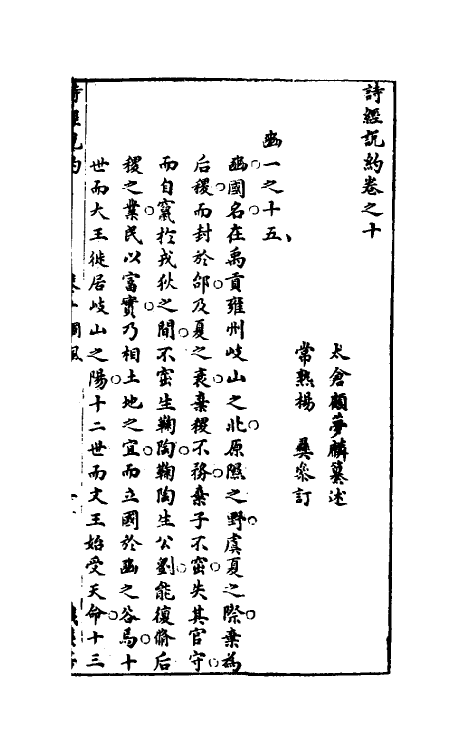 詩經說約卷之十
太倉顧夢麟纂述
常熟楊　彝參訂
豳一之十五
豳國名在禹貢雍州岐山之北原隰之野虞夏之際棄為
后稷而封於邰及夏之衰棄稷不務棄子不窋失其官守
而自竄於戎狄之間不窋生鞠陶鞠陶生公劉能復脩后
稷之業民以富實乃相土地之宜而立國於豳之谷焉十
世而大王徙居岐山之陽十二世而文王始受天命十三
詩經說約